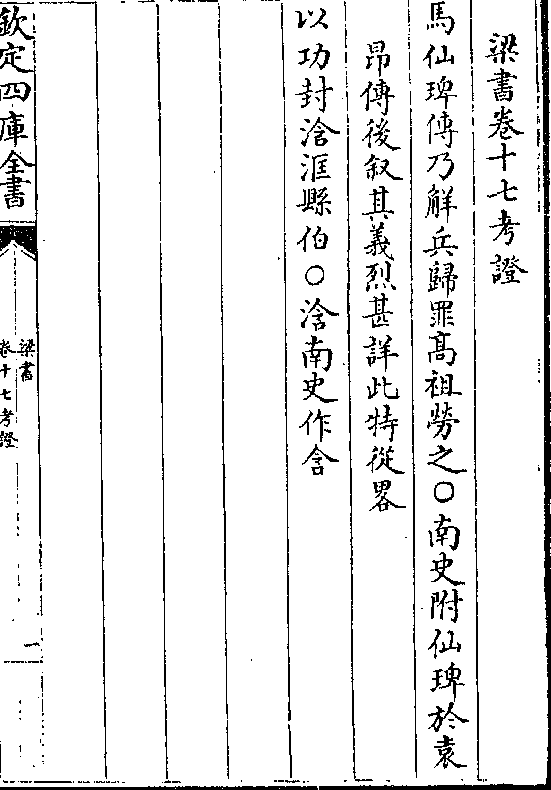 梁書卷十七考證
馬仙琕傳乃解兵歸罪高祖勞之○南史附仙琕於袁
昂傳後叙其義烈甚詳此特從畧
以功封浛洭縣伯○浛南史作含
欽定四庫全書
梁書
卷十七考證
一